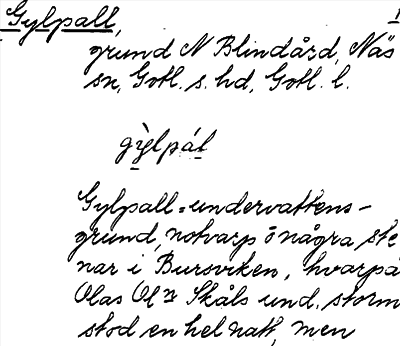 Gylpall,
grund N Blindård, Näs
sn, Gotl. s. hd, Gotl. l.
gỳlpál
Gylpall = undervattens-
grund, notvarp ō några ste
nar i Bursviken, hvarpå
Olas Ol:n Skåls und. storm
stod en hel natt, men